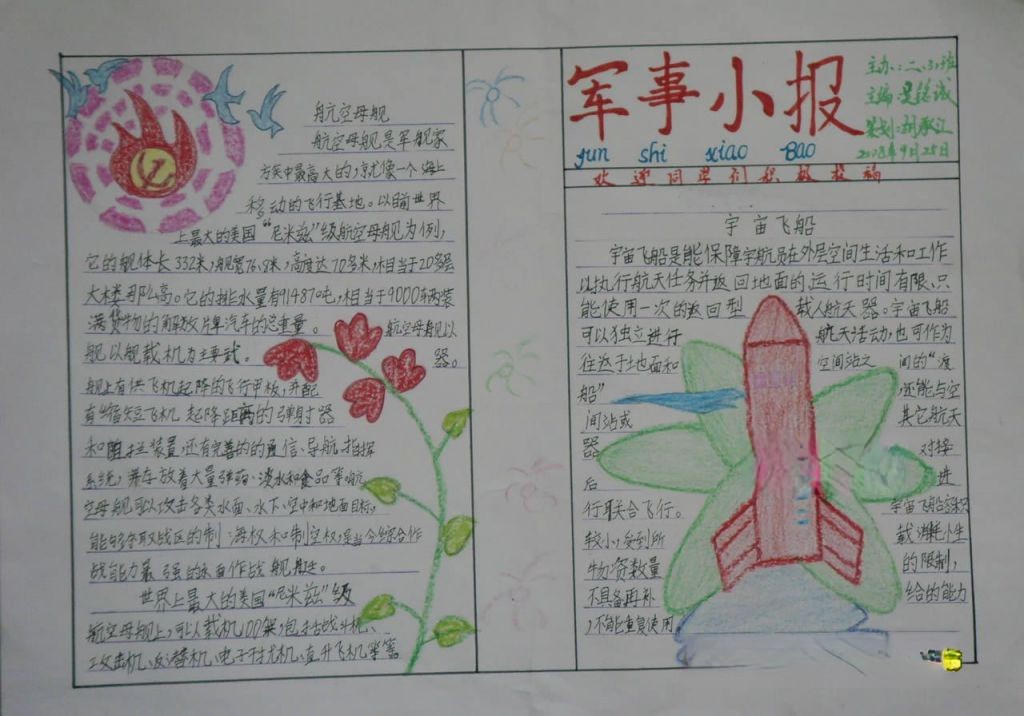 航空母舰
航空母舰是军舰家
族中最高大的,就像一个海上
移动的飞行基地。以目前世界
上最大的美国“尼米兹”级航空母舰为例,
它的舰体长332米,舰宽76.8米,高度达70多米,相当于20多层
大楼那么高。它的排水量有91487吨,相当于9000车两装
满货物的解放牌汽车的总重量。
航空母舰以
舰以舰载机为主要武
器。
舰上有供飞机起降的飞行甲板,并配
有缩短飞机起降距离的弹射器
和阻拦装置,还有完善的的通信、导航、指挥
系统,并存放着大量弹药、淡水和食品等,航
空母舰可以攻击各类水面、水下、空中和地面目标,
能够夺取战区的制海权和制空权,是当今综合作
战能力最强的水面作战舰艇。
世界上最大的美国“尼米兹”级
航空母舰上,可以载机100架,包括战斗机、
攻击机、反潜机、电子干扰机、直升飞机等等
军事小报
jun shi xiao Bao
主办:二、3:班
主编:
策划:
2008年9月25日
欢迎同学们积极投稿
宇宙飞船
宇宙飞船是能保障宇航员在外层空间生活和工作
以执行航天任务并返回地面的运行时间有限、只
能使用一次的返回型 载人航天器。宇宙飞船
可以独立进行 航天活动,也可作为
往返于地面和 空间站之 间的“渡
船” 还能与空
间站或 其它航天
器 对接
后 进
行联合飞行。 宇宙飞船容积
较小,受到所 载消耗小生
物资数量 的限制,
不具备再补 给的能力
,不能重复使用